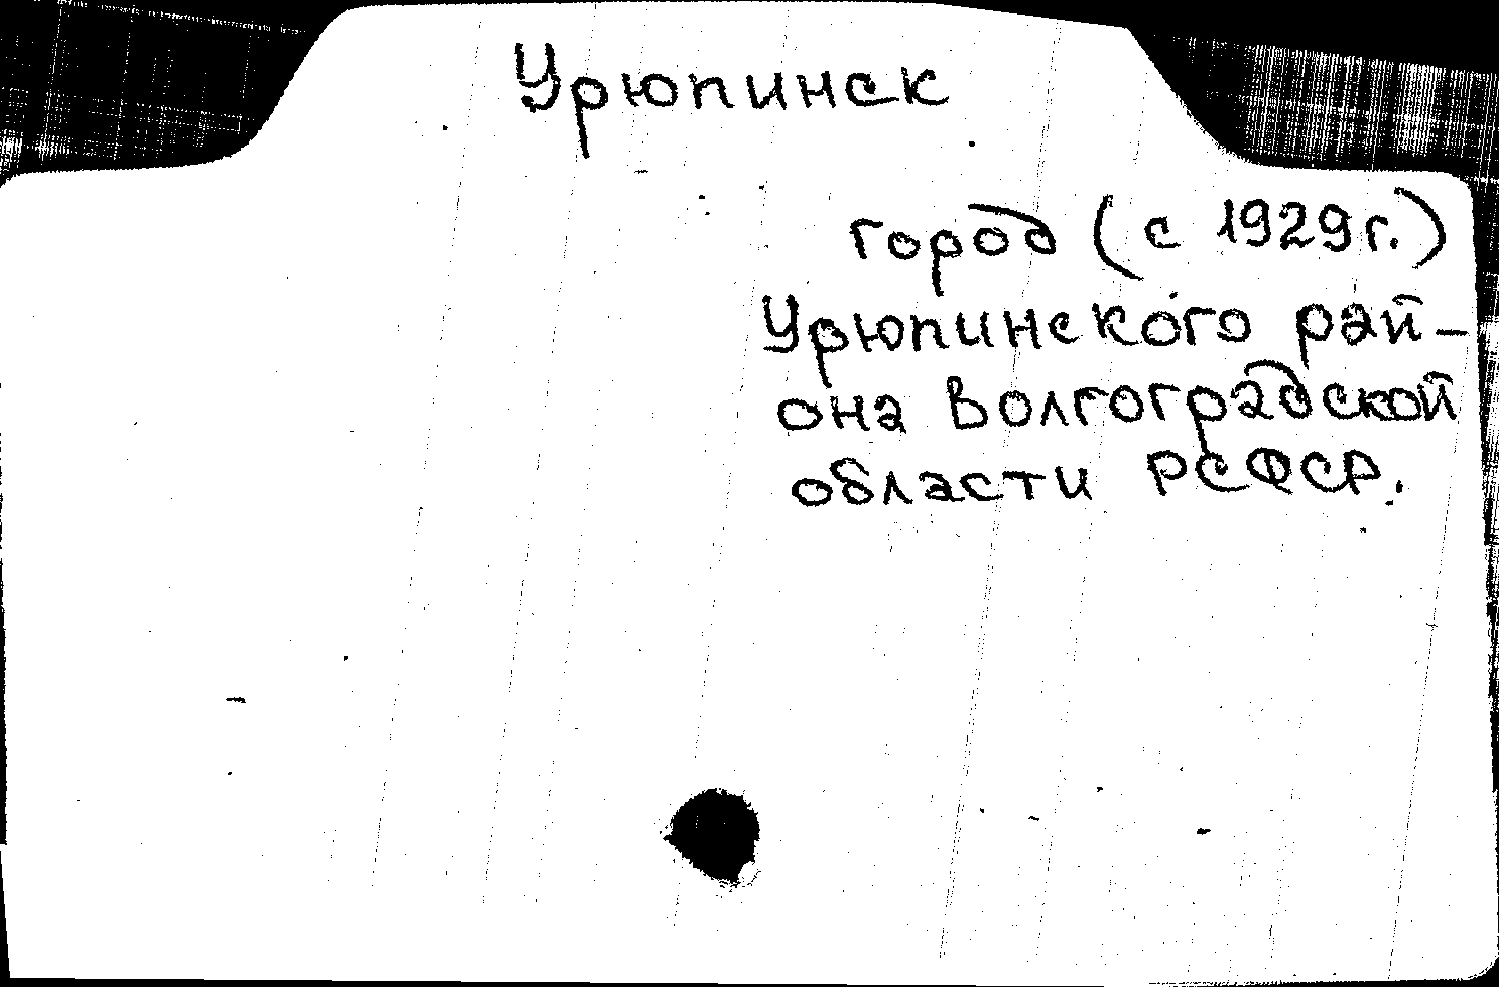 Урюпинск
город (с 1929 г.)
Урюпинского рай-
она Волгоградской
области РСФСР.